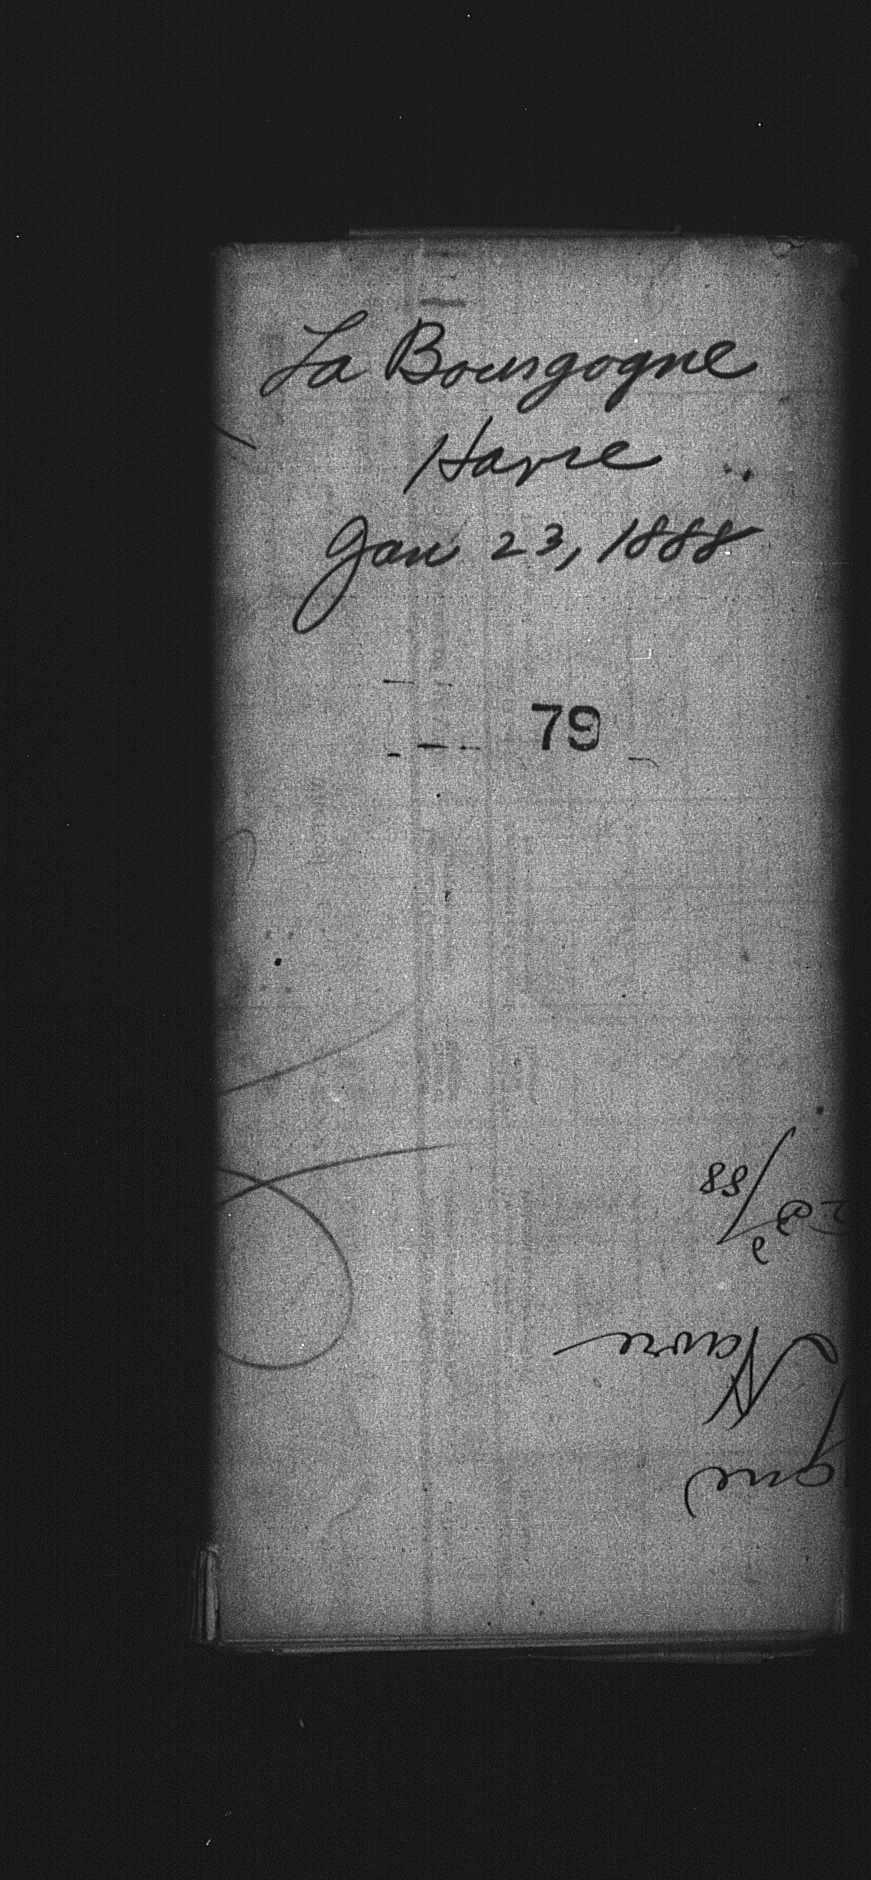 La Bourgogne
Havre
Jan 23, 1888
79
gne
Havre
88